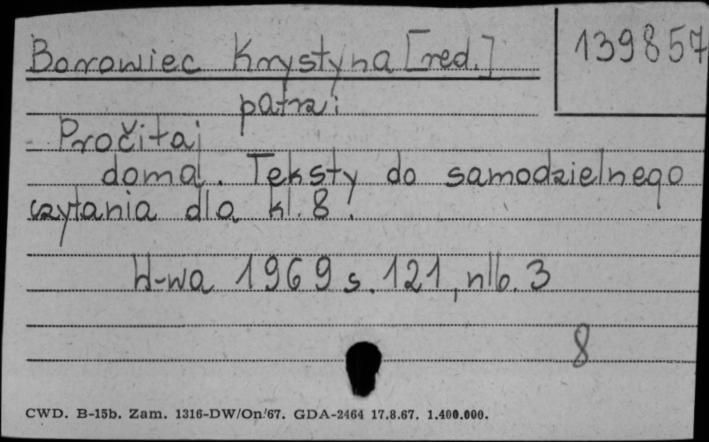 Borowiec Krystyna [red.]
139857
patrz:
Pročitaj
doma. Teksty do samodzielnego
czytania dla kl. 8.
W-wa 1969 s. 121, nlb. 3
8
CWD. B-15b. Zam. 1316-DW/On/67. GDA-2464 17.8.67. 1.400.000.